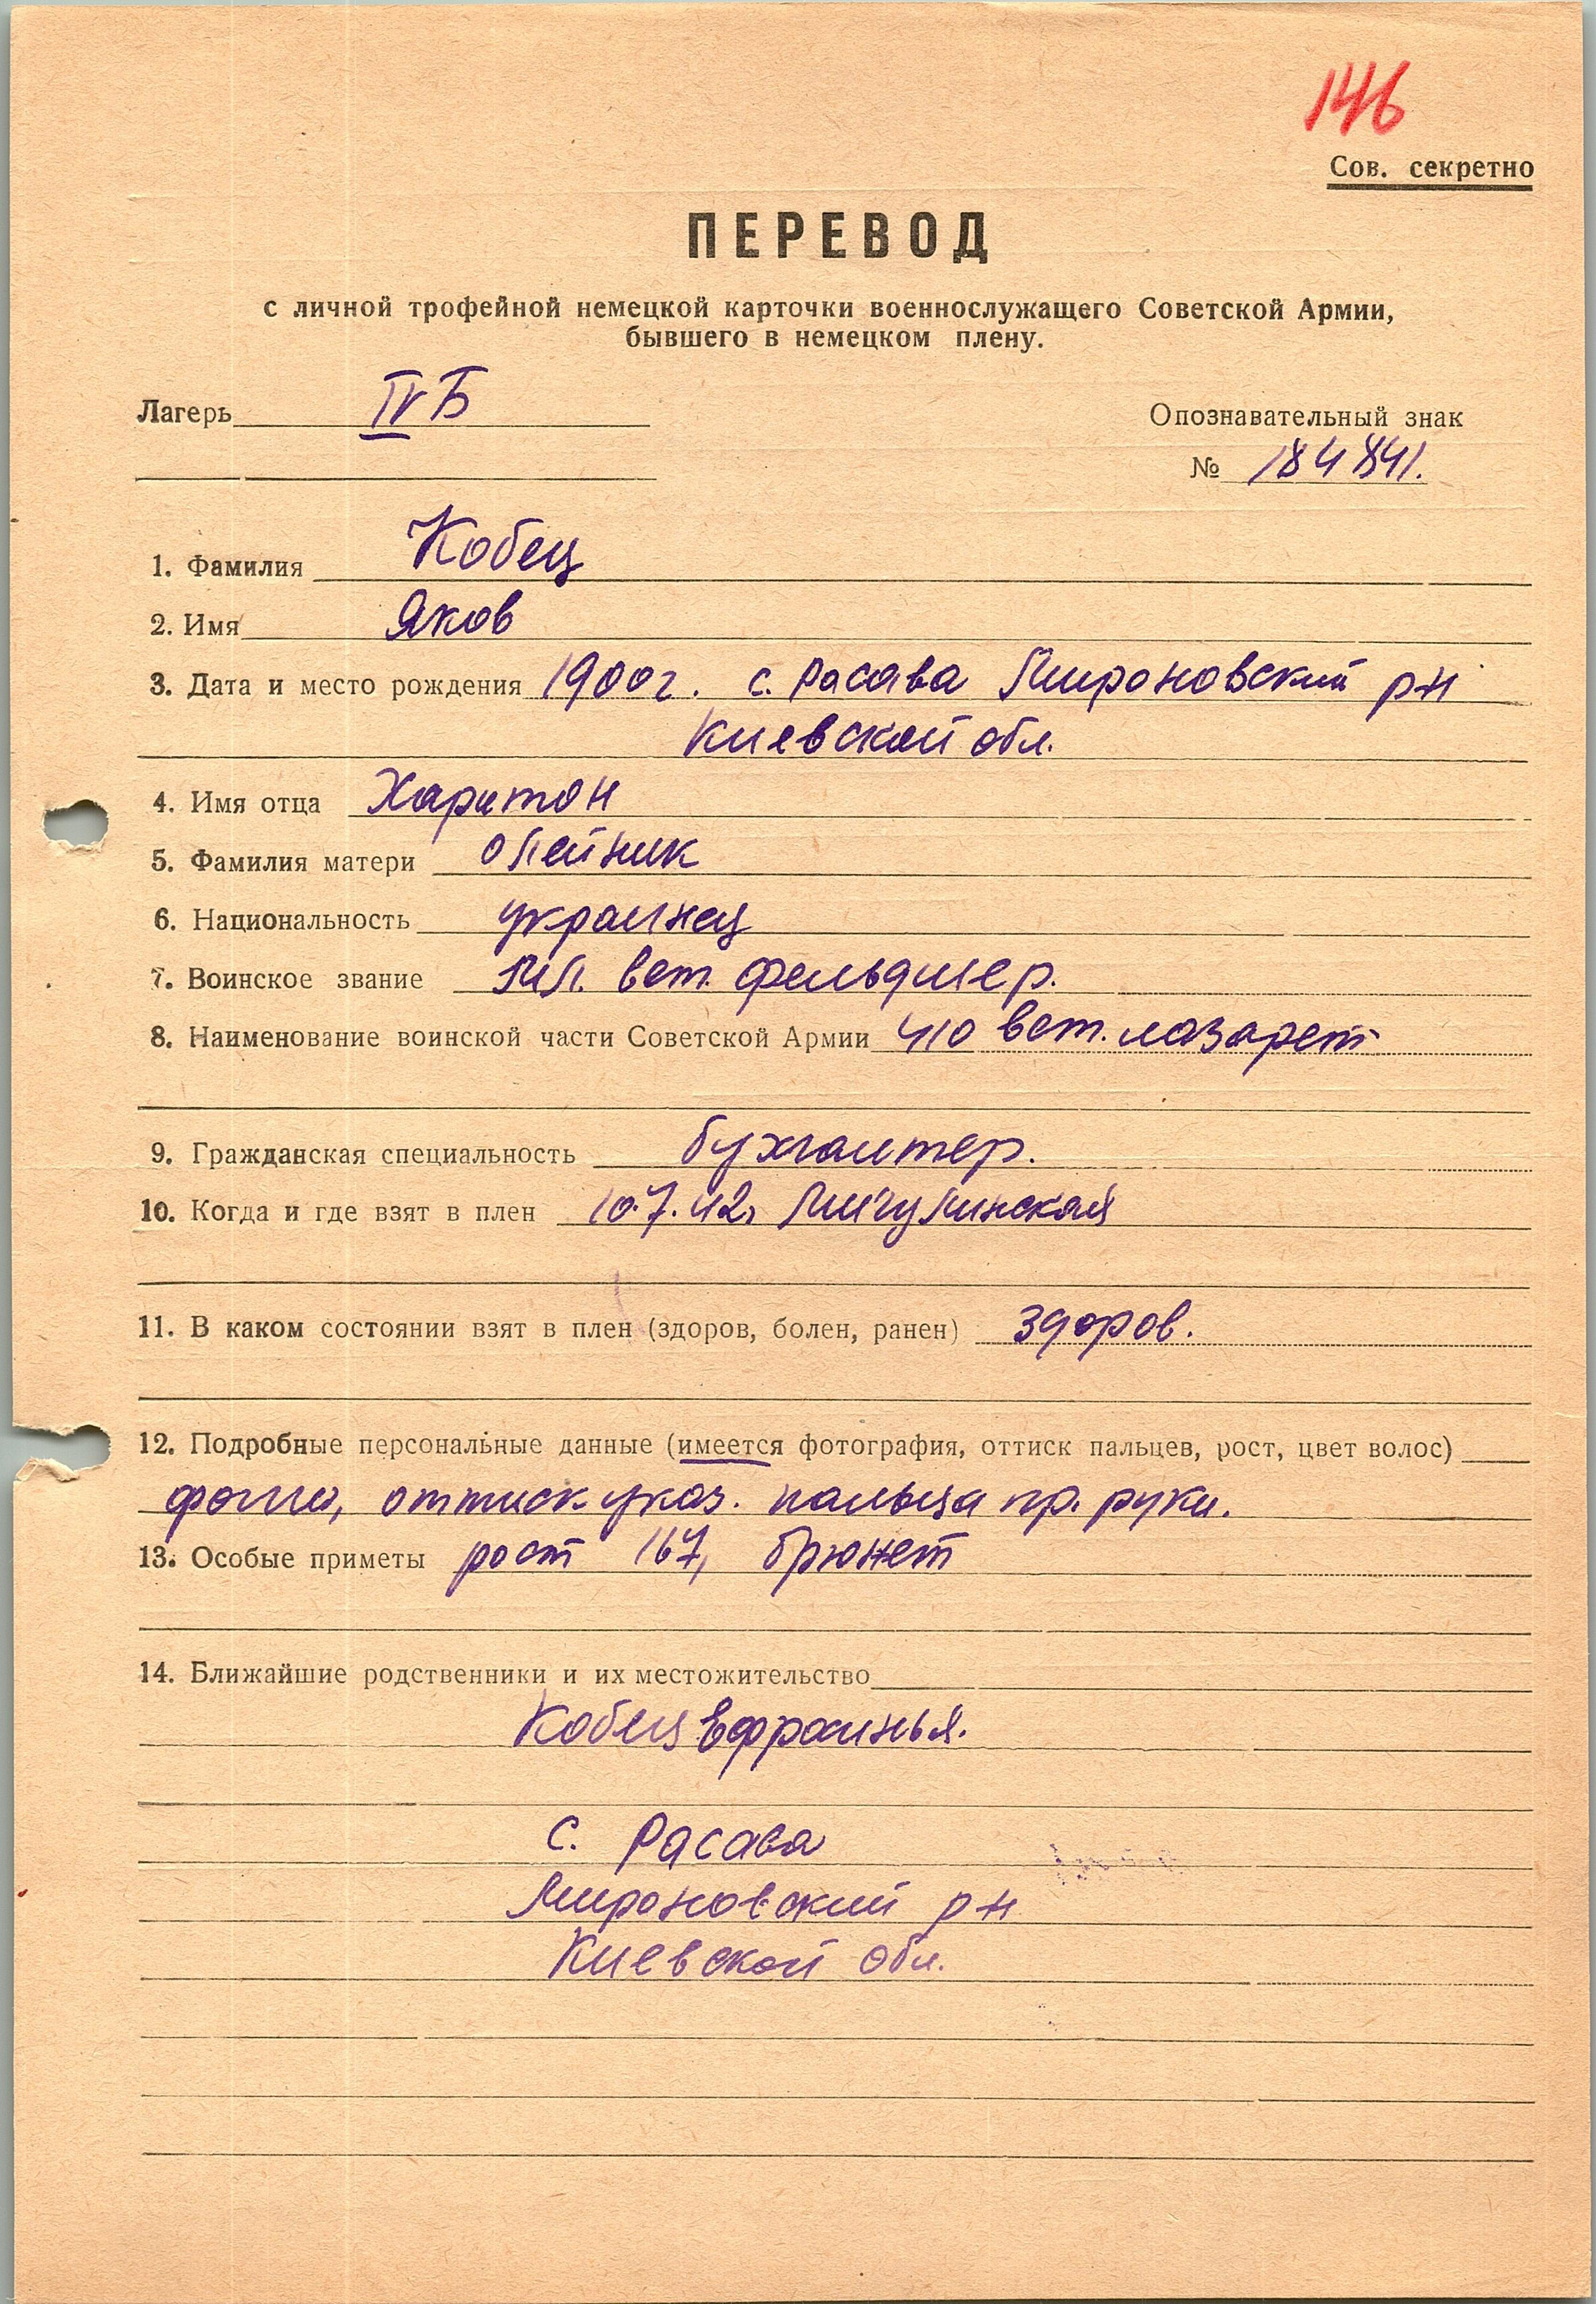 146
Сов. секретно
ПЕРЕВОД
с личной трофейной немецкой карточки военнослужащего Советской Армии,
бывшего в немецком плену.
Лагерь IV Б
Опознавательный знак
№ 184841.
1. Фамилия Кобец
2. Имя Яков
3. Дата и место рождения 1900 г. с. Расава Мироновский р-н
Киевской обл.
4. Имя отца Харитон
5. Фамилия матери Олейник
6. Национальность украинец
7. Воинское звание мл. вет. фельдшер.
8. Наименование воинской части Советской Армии 410 вет. лазарет
9. Гражданская специальность бухгалтер.
10. Когда и где взят в плен 10.7.42, Мигулинская
11. В каком состоянии взят в плен (здоров, болен, ранен) здоров.
12. Подробные персональные данные (имеется фотография, оттиск пальцев, рост, цвет волос)
фото, оттиск указ. пальца пр. руки.
13. Особые приметы рост 167, брюнет
14. Ближайшие родственники и их местожительство
Кобец Ефросинья.
с. Расава
Мироновский р-н
Киевской обл.